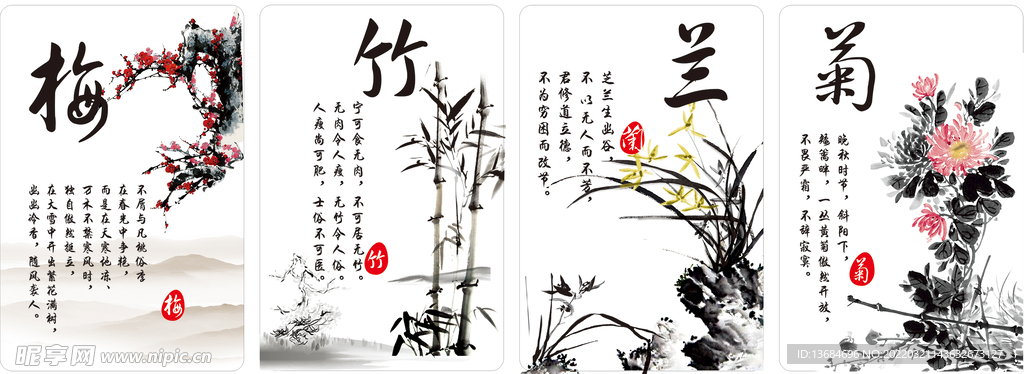 梅
不屑与凡桃俗李
在春光中争艳，
而是在天寒地冻、
万木不禁寒风时，
独自傲然挺立，
在大雪中开出繁花满树，
幽幽冷香，随风袭人。
梅
竹
宁可食无肉，不可居无竹。
无肉令人瘦，无竹令人俗。
人瘦尚可肥，士俗不可医。
竹
兰
芝兰生幽谷，
不以无人而不芳，
君修道立德，
不为穷困而改节。
兰
菊
晚秋时节，斜阳下，
矮篱畔，一丛黄菊傲然开放，
不畏严霜，不辞寂寞。
菊
昵享网 www.nipic.cn